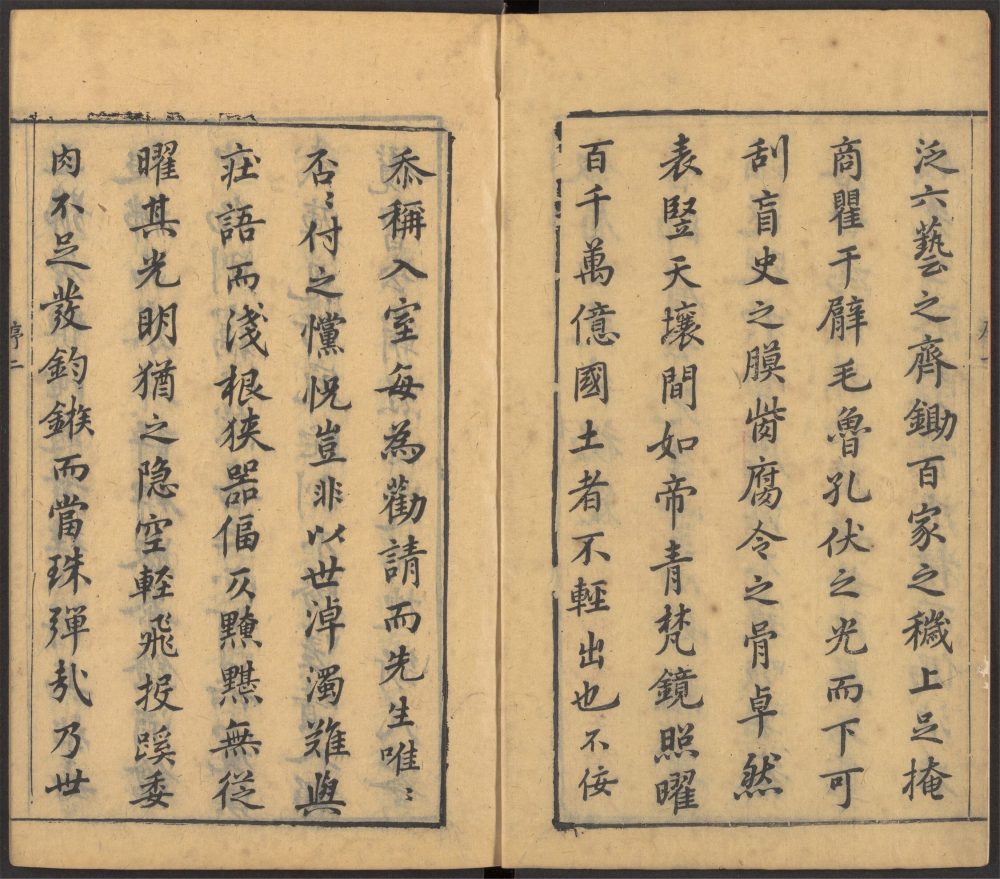 泛六藝之齊鋤百家之穢上足掩
商瞿干臂毛魯孔伏之光而下可
刮盲史之膜凿腐令之骨卓然
表豎天壤間如帝青梵鏡照曜
百千萬億國土者不輕出也不佞
忝稱入室每為勸請而先生唯〻
否〻付之戃怳豈非以世淖濁難與
莊語而淺根狹器偪仄黭黮無從
曜其光明猶之隐空輕飛投蹊委
肉不足發鈞鏃而當珠彈㢤乃世
序二